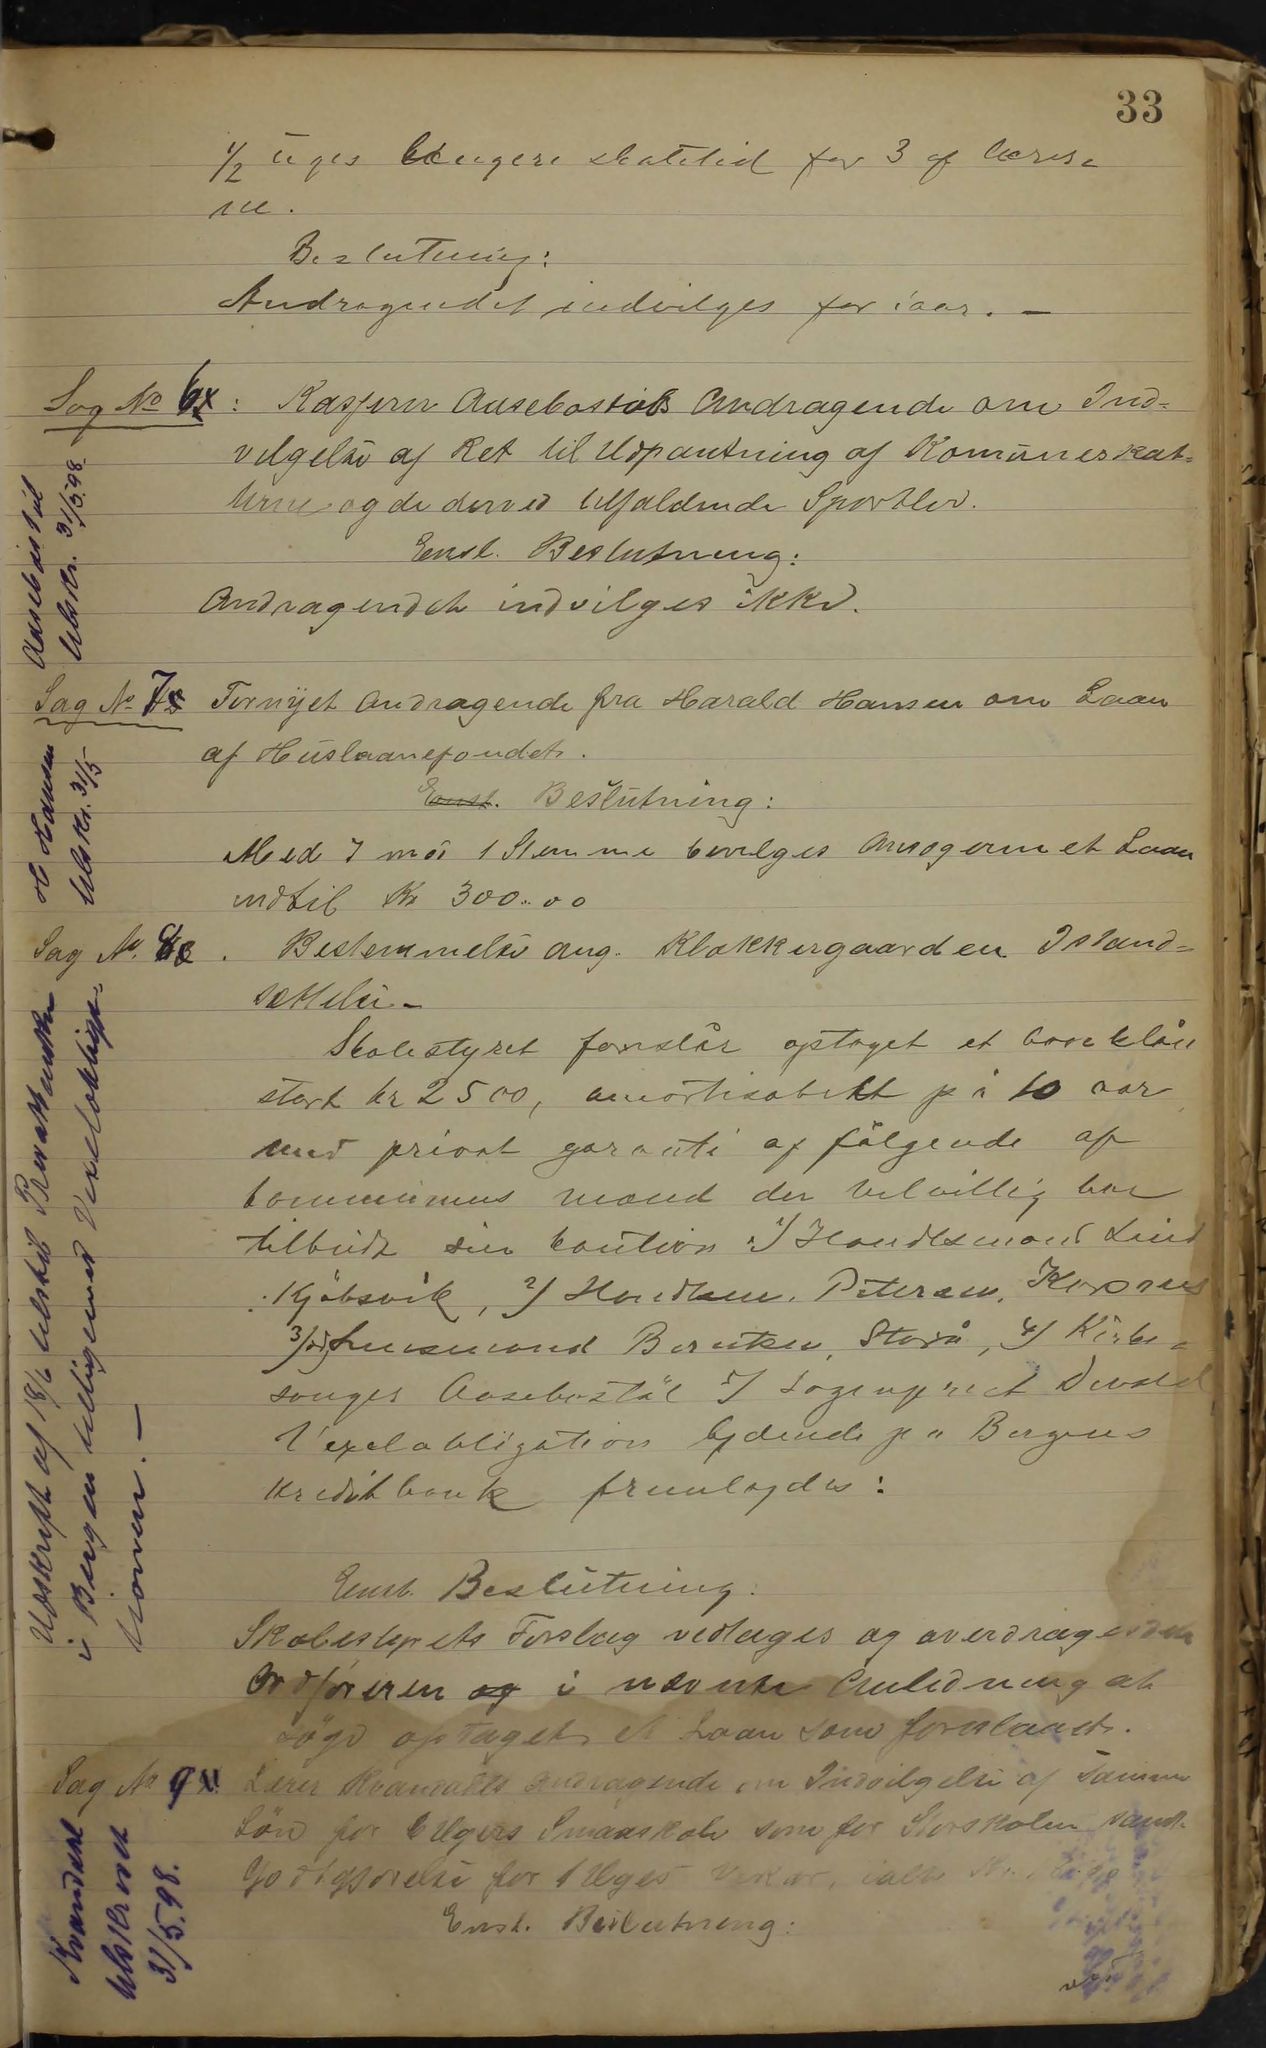 33
1/2 uges længere skoletid for 3 af lærer-
ne.
Beslutning:
Andragendet indvilges for iaar. –
Sag No 6: Kaspern Aasebøstøls Andragende om Ind-
vilgelse af Ret til Udpantning af Kommuneskat-
terne og de derved tilfaldende Sportler.
Enst. Beslutning:
Andragendet indvilges ikke.
Aasebøstøl
Udskr. 31/5 98.
Sag No 7 Fornyet Andragende fra Harald Hansen om Laan
af Huslaanefondet.
Enst. Beslutning:
Med 7 mod 1 Stemme bevilges Ansøgeren et Laan
indtil Kr 300.00
H Hansen
Udskr. 31/5
Sag No. 8. Bestemmelse ang. Klokkergaarden Istand-
sættelse –
Skolestyret forslår optaget et banklån
stort kr 2500, amortisabelt på 10 aar
med privat garanti af følgende af
kommunens mænd der velvillig har
tilbudt sin kaution 1/ Handelsmand Lind
Kjøbsvik, 2/ Handelsm. Petersen, Korsnes
3/ Lensmand Berntsen, Storå, 4/ Kirke-
sanger Aasebøstøl 5/ Sogneprest
Vexelobligation lydende på Bergens
Kreditbank fremlagdes:
Enst. Beslutning:
Skolestyrets Forslag vedtages og overdrages det
Ordføreren og i nævnte Anledning at
søge optaget et Laan som foreslaaet.
Udskrift af 18/6 tilstillet Privatbanken
i Bergen tilligemed Vexelobliga-
tionen. –
Sag No 9. Lærer Kvandals Andragende om Indvilgelse af samme
Løn for 6 Ugers Smaaskole som for Storskolen samt
Godtgjørelse for 1 Uges Vikar, ialt Kr.
Enst. Beslutning:
Kvandal
Udskrevet
31/5.98.